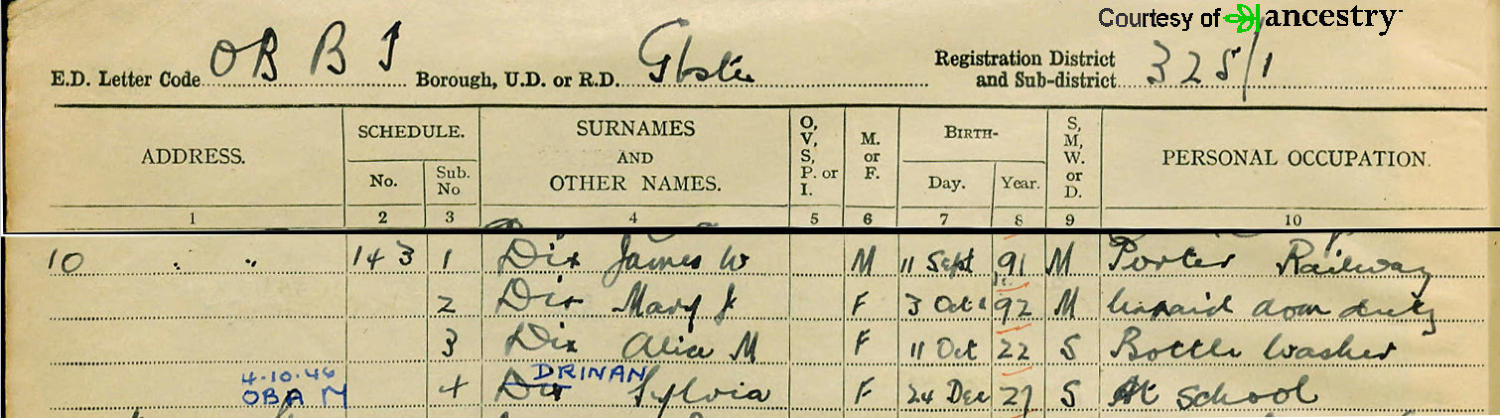 Courtesy of ancestry
E.D. Letter Code OBBJ Borough, U.D. or R.D. Gloster Registration District and Sub-district 325/1
ADDRESS. SCHEDULE. No. Sub. No SURNAMES AND OTHER NAMES. O, V, S, P. or I. M. or F. BIRTH- Day. Year. S, M, W. or D. PERSONAL OCCUPATION.
1 2 3 4 5 6 7 8 9 10
10 " " 143 1 Dix James W M 11 Sept 91 M Porter Railway
2 Dix Mary J F 3 Oct 92 M Unpaid dom duty
3 Dix Alice M F 11 Oct 22 S Bottle Washer
4-10-46 OBA M 4 Dix DRINAN Sylvia F 24 Dec 27 S At School